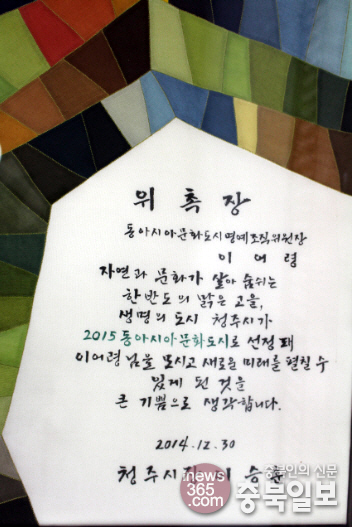 위 촉 장
동아시아문화도시명예조직위원장
이 어 령
자연과 문화가 살아 숨쉬는
한반도의 맑은 고을,
생명의 도시 청주시가
2015 동아시아문화도시로 선정돼
이어령님을 모시고 새로운 미래를 펼칠 수
있게 된 것을
큰 기쁨으로 생각합니다.
2014.12.30
청주시장 이 승
inews
365.com
중북인의 신문
중북일보